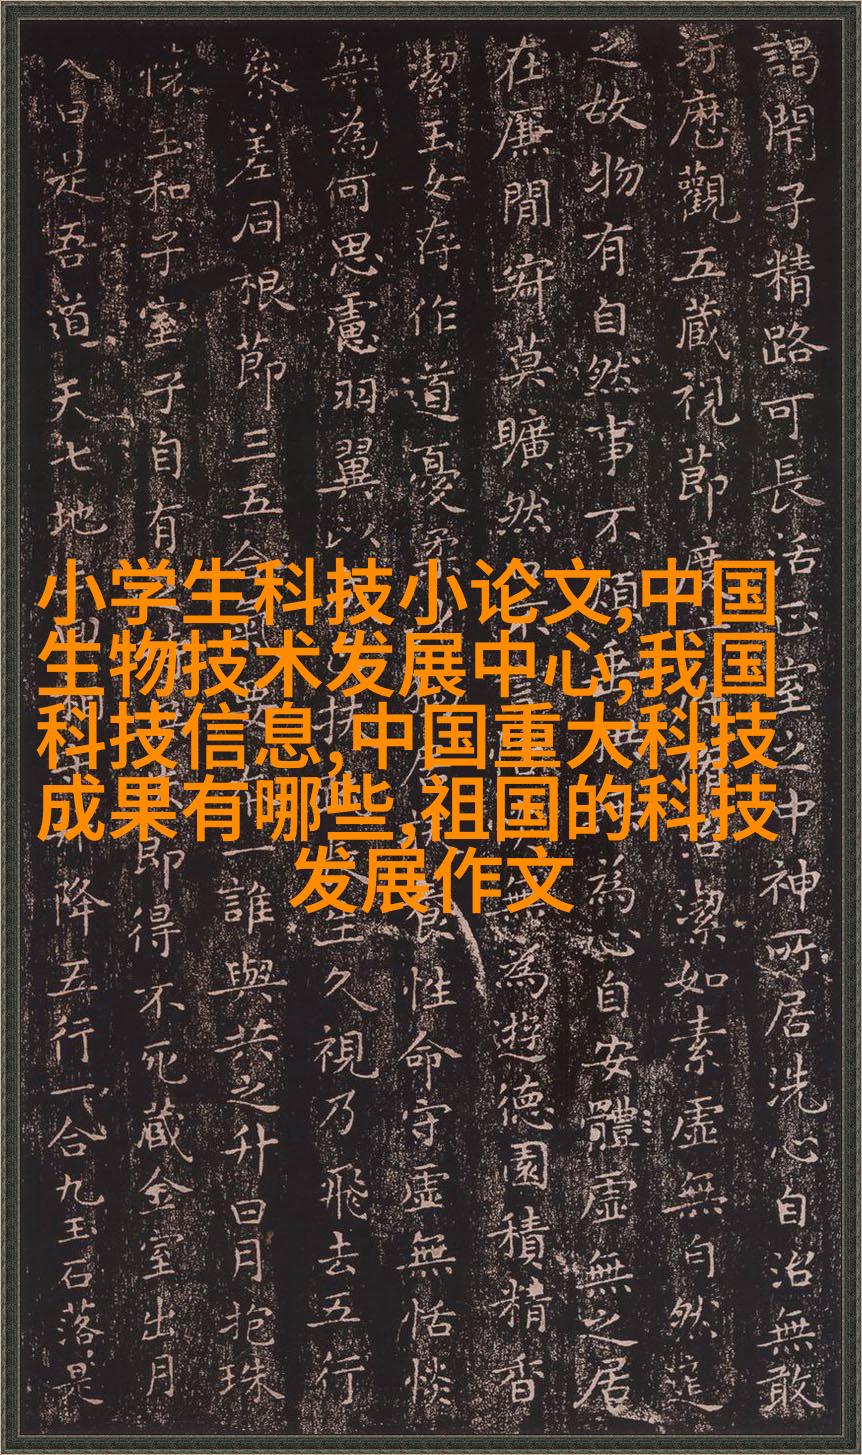 謁閇子精路可長活正室之中神所居洗心自治無敢
汙歷觀五藏視節度脩治潔如素虛無自然道
之故物有自然事不煩垂拱無為心自安體虛無之居
在廉閒寂莫曠然不言無為遊德園積精香
潔玉女存作道憂柔身性命守虛無恬惔
無為何思慮羽翼以扶生久視乃飛去五行
參差同根節三五合一誰與共之升日月抱珠
懷玉和子室子自有即得不死藏金室出月
入日是吾道天七地回相升降五行一合九玉石落是
小学生科技小论文,中国
生物技术发展中心,我国
科技信息,中国重大科技
成果有哪些,祖国的科技
发展作文